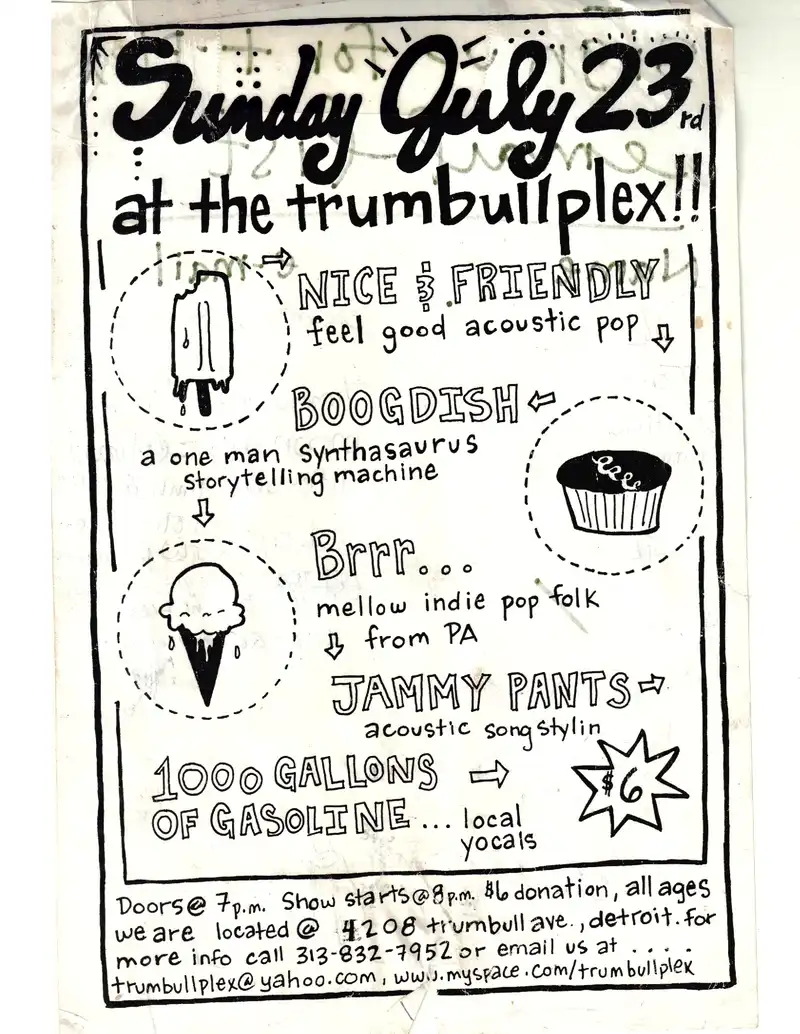 Sunday July 23rd
at the trumbullplex!!
NICE & FRIENDLY
feel good acoustic pop
BOOGDISH
a one man synthasaurus
storytelling machine
Brrr...
mellow indie pop folk
from PA
JAMMY PANTS
acoustic songstylin
1000 GALLONS
OF GASOLINE... local
yocals
$6
Doors@ 7p.m. Show starts@8p.m. $6 donation, all ages
we are located @ 4208 trumbull ave., detroit. for
more info call 313-832-7952 or email us at ....
trumbullplex@yahoo.com, www.myspace.com/trumbullplex